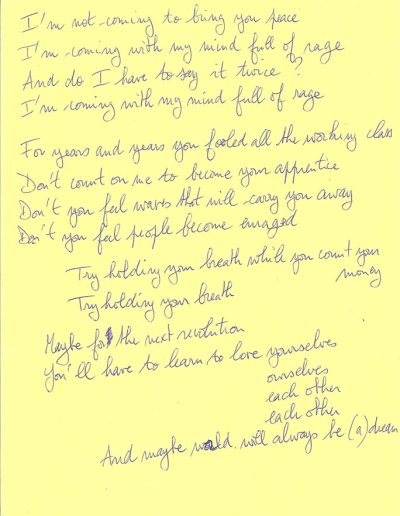 I'm not coming to bring you peace
I'm coming with my mind full of rage
And do I have to say it twice?
I'm coming with my mind full of rage
For years and years you fooled all the working class
Don't count on me to become your apprentice
Don't you feel waves that will carry you away
Don't you feel people become enraged
Try holding your breath while you count your
money
Try holding your breath
Maybe for the next revolution
You'll have to learn to love yourselves
ourselves
each other
each other
And maybe world will always be (a) dream